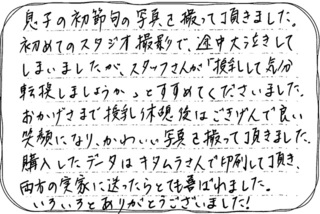 息子の初節句の写真を撮って頂きました。
初めてのスタジオ撮影で、途中大泣きして
しまいましたが、スタッフさんが「授乳して気分
転換しましょうか」とすすめてくださいました。
おかげさまで授乳休憩後はごきげんで良い
笑顔になり、かわいい写真を撮って頂きました。
購入したデータはキタムラさんで印刷して頂き、
両方の実家に送ったらとても喜ばれました。
いろいろとありがとうございました!